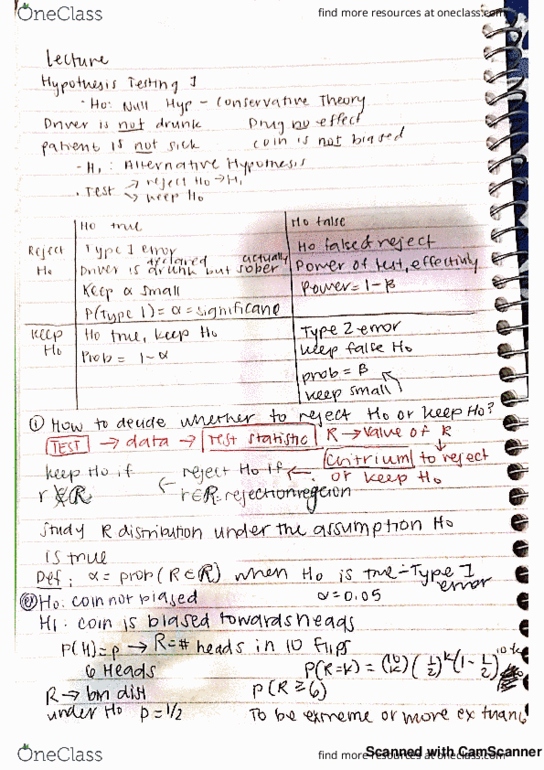 OneClass
find more resources at oneclass.com
Lecture
Hypothesis Testing I
· Ho: Null Hyp - Conservative Theory
Driver is not drunk Drug no effect
patient is not sick coin is not biased
- H1: Alternative Hypothesis
· Test → reject Ho → H1
↘ keep Ho
Ho true Ho false
Reject Ho
Type I error
Driver is declared drunk but actually sober
Keep α small
P(Type 1) = α = significance
Ho false & reject
Power of test, effectivity
Power = 1 - β
Keep Ho
Ho true, keep Ho
Prob = 1-α
Type 2 error
keep false Ho
prob = β
keep small
① How to decide whether to reject Ho or keep Ho?
TEST → data → Test statistic R → value of R
Critrium to reject
or keep Ho
keep Ho if ← reject Ho if ←
r ∉ R r ∈ R: rejection region
Study R distribution under the assumption Ho
is true
Def: α = prob(R ∈ R) when Ho is true - Type I error
Ho: coin not biased α = 0.05
H1: coin is biased towards heads
P(H) = p → R = # heads in 10 flips
6 Heads P(R=k) = (10/k) (1/2)^k (1 - 1/2)^10-k
R → bin dist P(R ≥ 6)
under Ho p = 1/2 To be extreme or more ex than 6
Scanned with CamScanner
OneClass
find more resources at oneclass.com